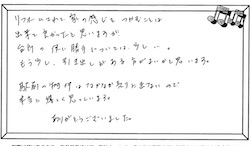 リフォームされて家の感じも つかむことは
出来て良かったと思いますが、
台所の使い勝手については、少し…。
もう少し、引き出しがある方がよいかと思います。
駐車の物件はなかなか売りに出ないので
本当に嬉しく思っています。
ありがとうございました。